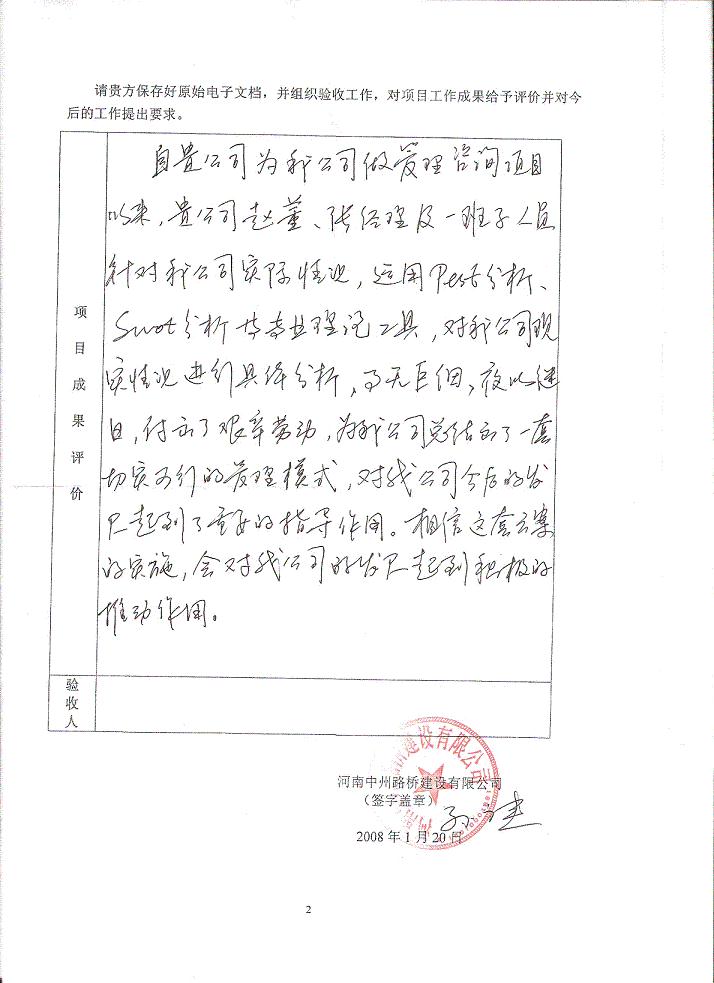 请贵方保存好原始电子文档，并组织验收工作，对项目工作成果给予评价并对今
后的工作提出要求。
项目成果评价
自贵公司为我公司做管理咨询项目
以来，贵公司赵董、张经理及一班子人员
针对我公司实际情况，运用Pest分析、
Swot分析等专业理论工具，对我公司现
实情况进行具体分析，事无巨细，夜以继
日，付出了艰辛劳动，为我公司总结出了一套
切实可行的管理模式，对我公司今后的发
展起到了重要的指导作用。相信这套方案
的实施，会对我公司的发展起到积极的
推动作用。
验收人
建设有限公司
河南中州路桥建设有限公司
（签字盖章）
2008年1月20日
2